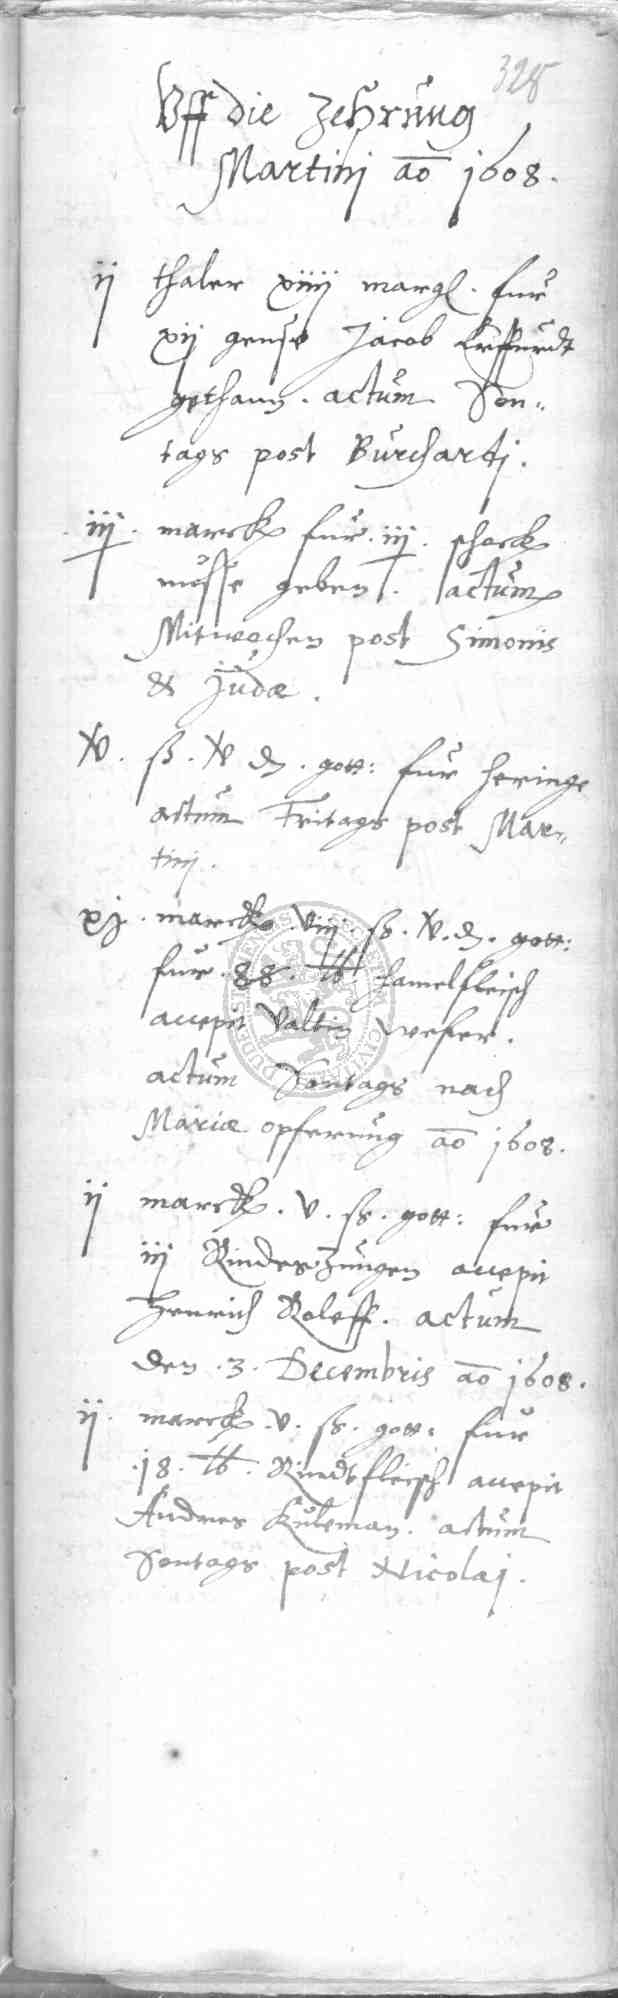 328
Uff die Zehrung
Martinj ao 1608.
ij thaler xiiij margl. fur
xij gense Jacob Erffurdt
gethann. actum Son„
tags post Burchartj.
iij. marck fur. iij. schock
nusse geben. actum
Mitwochen post Simonis
& Judæ.
XV. ß. XV d. gott: fur heringe
actum Fritags post Mar„
tinj.
xj. marck. viij. ß. V. d. gott:
fur. 88. lb hamelfleisch
accepit Valtin weser.
actum Sontags nach
Mariæ opferung ao 1608.
ij marck. v. ß. gott: fur
iij Rinderzungen accepit
Henrich Roleff. actum
den. 3. Decembris ao 1608.
ij. marck. v. ß. gott: fur
.18. lb. Rindtfleisch accepit
Andres Kuleman. actum
Sontags post Nicolaj.